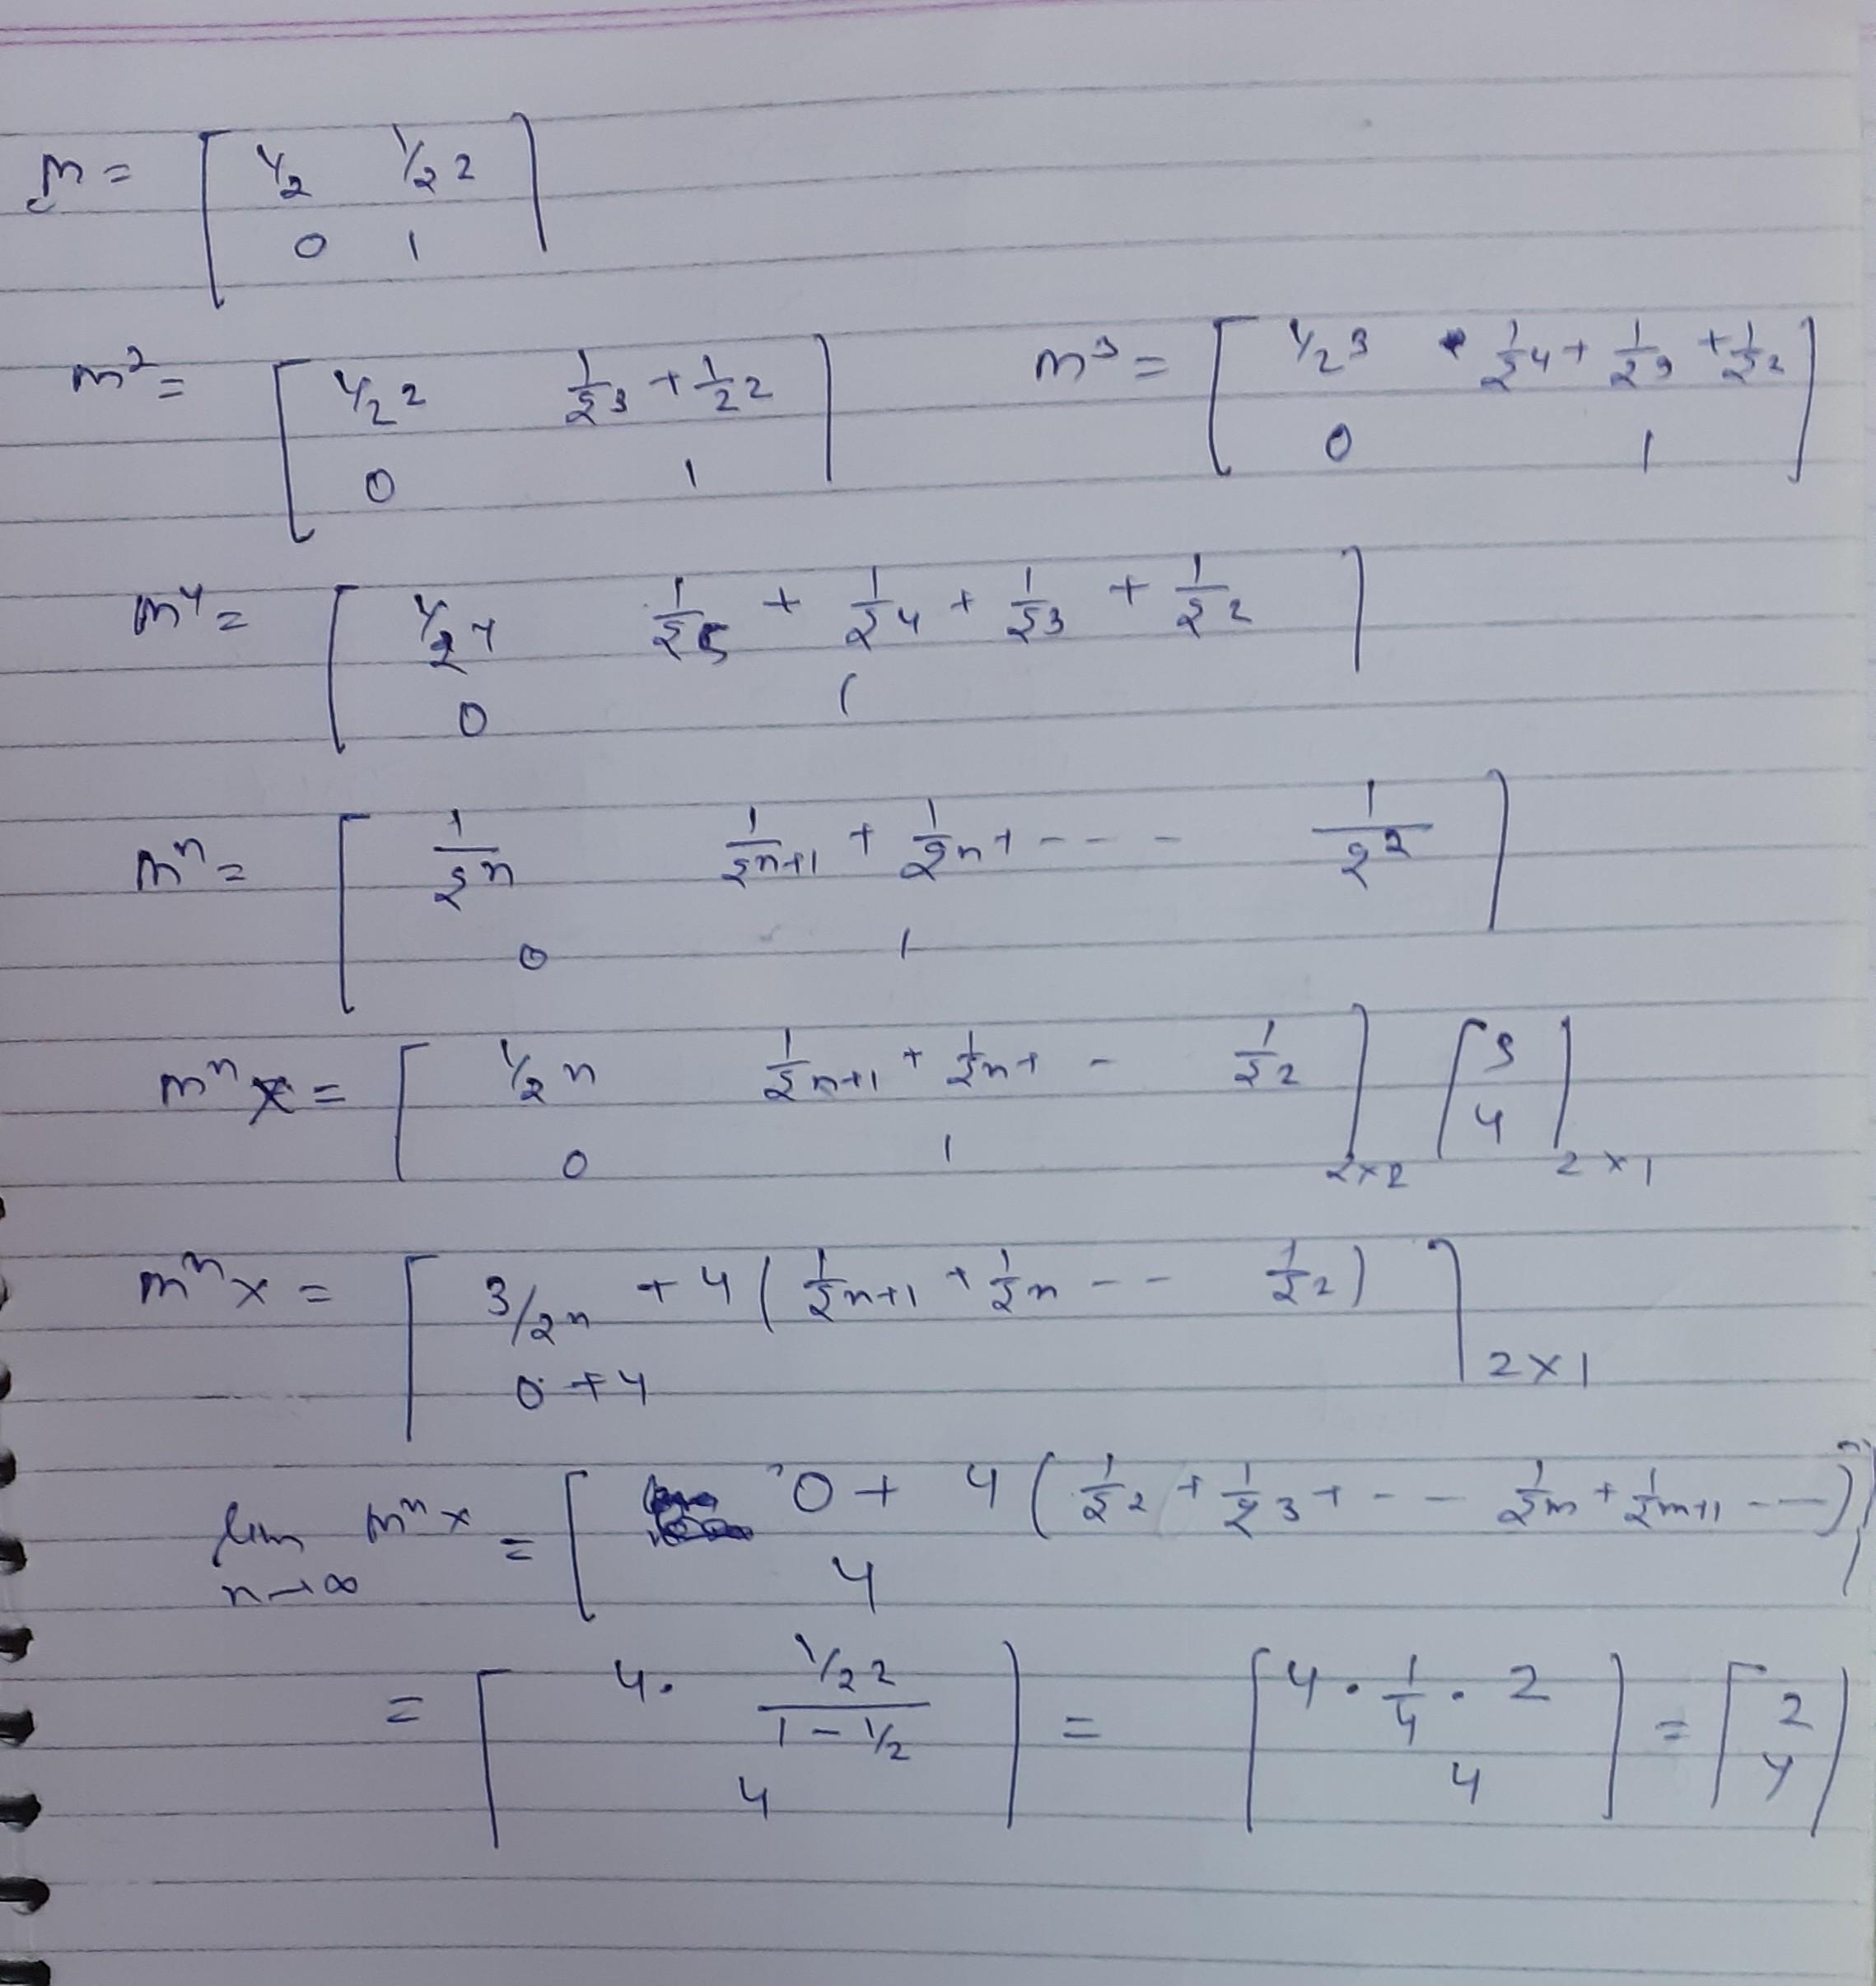 m = [ 1/2 1/2² ]
0 1
m² = [ 1/2² 1/2³ + 1/2² ] m³ = [ 1/2³ 1/2⁴ + 1/2³ + 1/2² ]
0 1 0 1
m⁴ = [ 1/2⁴ 1/2⁵ + 1/2⁴ + 1/2³ + 1/2² ]
0 1
mⁿ = [ 1/2ⁿ 1/2ⁿ⁺¹ + 1/2ⁿ + - - - 1/2² ]
0 1
mⁿx = [ 1/2ⁿ 1/2ⁿ⁺¹ + 1/2ⁿ + - 1/2² ] [ 3
0 1 2×2 4 ] 2×1
mⁿx = [ 3/2ⁿ + 4 ( 1/2ⁿ⁺¹ + 1/2ⁿ - - 1/2² ) ]
0 + 4 2×1
lim n→∞ mⁿx = [ 0 + 4 ( 1/2² + 1/2³ + - - 1/2ⁿ + 1/2ⁿ⁺¹ - - ) ]
4
= [ 4 · (1/2²)/(1 - 1/2) ] = [ 4 · 1/4 · 2 ] = [ 2
4 4 4 ]